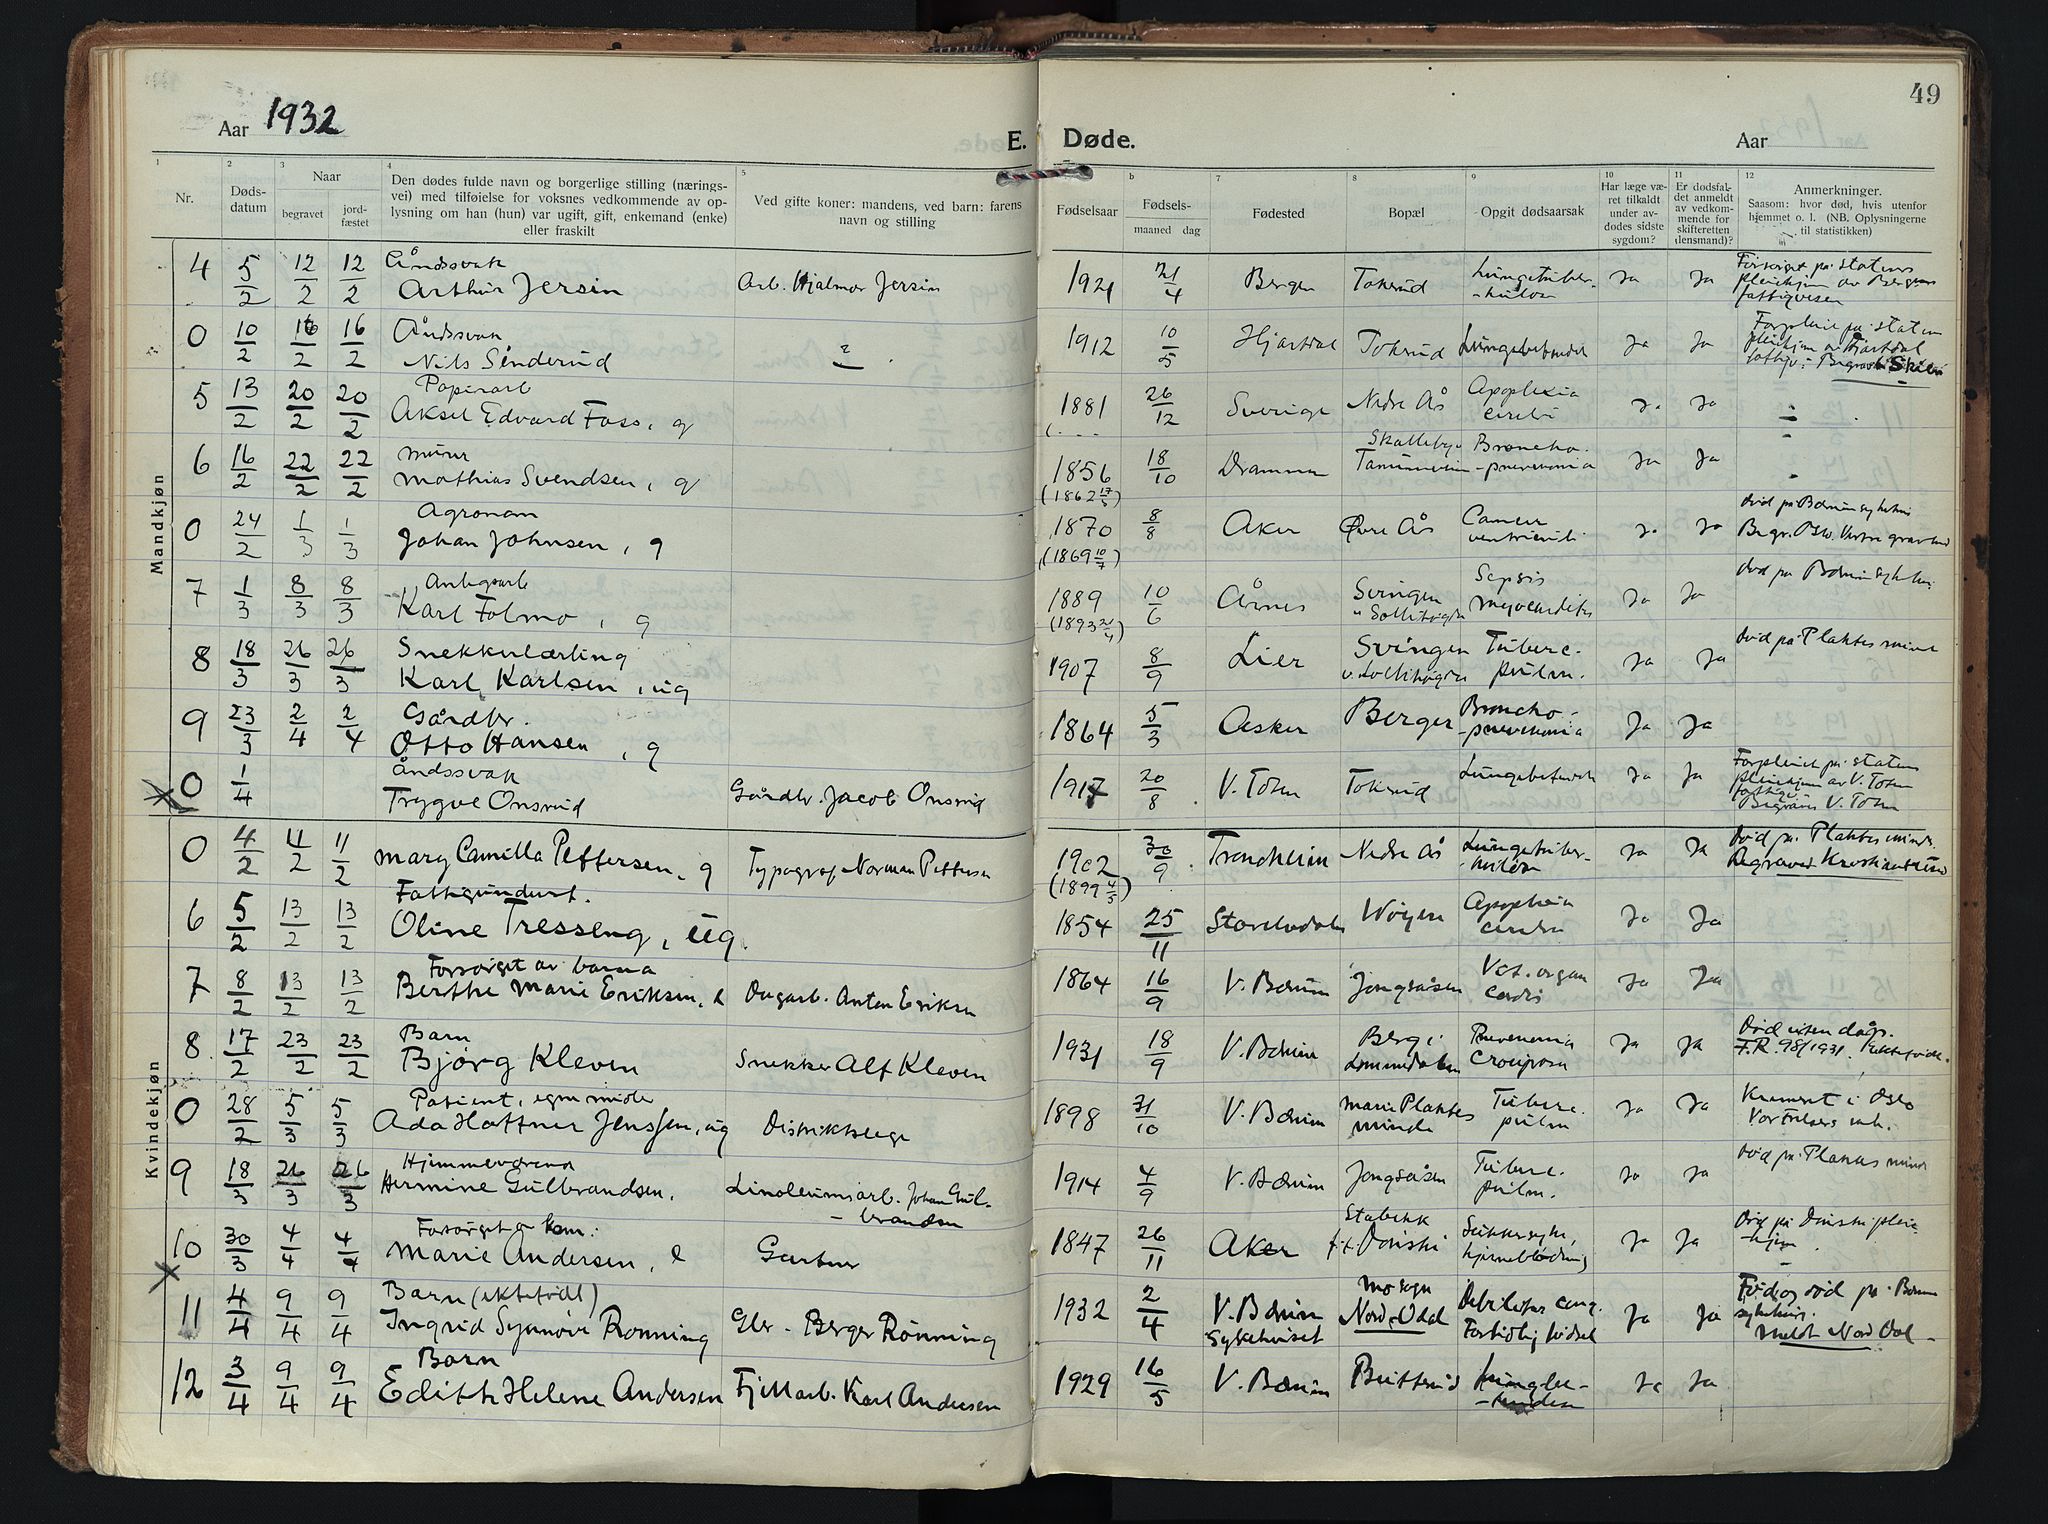 Aar 1932
E. Døde.
Aar
49
1 2 3 4 5 b 7 8 9 10 11 12
Nr.
Døds-
datum
Naar
begravet
jord-
fæstet
Den dødes fulde navn og borgerlige stilling (nærings-
vei) med tilføielse for voksnes vedkommende av op-
lysning om han (hun) var ugift, gift, enkemand (enke)
eller fraskilt
Ved gifte koner: mandens, ved barn: farens
navn og stilling
Fødselsaar
Fødsels-
maaned dag
Fødested
Bopæl
Opgit dødsaarsak
Har læge væ-
ret tilkaldt
under av-
dødes sidste
sygdom?
Er dødsfal-
det anmeldt
av vedkom-
mende for
skifteretten
(lensmand)?
Anmerkninger.
Saasom: hvor død, hvis utenfor
hjemmet o. l. (NB. Oplysningerne
til statistikken)
Mandkjøn
4 5/2 12/2 12/2 Åndssvak
Arthur Jersin Arb. Hjalmar Jersin 1921 21/4 Bergen Tokerud Lungetuber-
-kulose Ja Ja Forsørget på statens
pleiehjem av Bergens
fattigvesen
0 10/2 16/2 16/2 Åndssvak
Nils Sønderud ? 1912 10/5 Hjartdal Tokerud Ja Ja
5 13/2 20/2 20/2 Papirarb
Aksel Edvard Foss, g 1881 26/12 Sverige Nedre Ås Apoplexia
cerebri Ja Ja
6 16/2 22/2 22/2 Murer
Mathias Svendsen, g 1856 18/10 Drammen Broncho-
-pneumonia Ja Ja
(1862 17/5)
0 24/2 1/3 1/3 Agronom
Johan Johnsen, g 1870 8/8 Aker Øvre Ås Cancer
ventriculi Ja Ja død på Bærum sykehus
(1869 10/7)
7 1/3 8/3 8/3 Anlegsarb
Karl Folmo, g 1889 10/6 Årnes Svingen
v Sollihøgda Sepsis
myocarditis Ja Ja død på Bærum sykehus
8 18/3 26/3 26/3 Snekkerlærling
Karl Karlsen, ug 1907 8/9 Lier Svingen
v. Sollihøgda Tuberc.
pulm. Ja Ja død på Plahtes minde
9 23/3 2/4 2/4 Gårdbr.
Otto Hansen, g 1864 5/3 Asker Berger Broncho-
-pneumonia Ja Ja
0 1/4 Åndssvak
Trygve Onsrud Gårdbr. Jacob Onsrud 1917 20/8 V. Toten Tokerud Ja Ja Forpleiet på statens
pleiehjem av V. Toten
fattigv.
Begraves V. Toten
Kvindekjøn
0 4/2 11/2 11/2 Mary Camilla Pettersen, g Typograf Norman Pettersen 1902 30/9 Trondheim Nedre Ås Lungetuber-
-kulose Ja Ja Død på Plahtes minde
(1899 4/5)
6 5/2 13/2 13/2 Fattigunderst.
Oline Tresseng, ug. 1854 25/11 Wøyen Apoplexia
cerebri Ja Ja
7 8/2 13/2 13/2 Forsørget av barna
Berthe Marie Eriksen, e Anton Eriksen 1864 16/9 V. Bærum Jongsåsen Vit. organ
cordis Ja Ja
8 17/2 23/2 23/2 Barn
Bjørg Kleven Snekker Alf Kleven 1931 18/9 V. Bærum Berg i
Lommedalen Pneumonia
crouposa Ja Ja Død uten dåp.
F.R. 98/1931. Ektefødt.
0 28/2 5/3 5/3 Patient, egne midler
Ada Hoffner Jenssen, ug Distriktslege 1898 31/10 V. Bærum Marie Plahtes
minde Tuberc.
pulm Ja Ja Kremert i Oslo
Vor Frelsers
9 18/3 26/3 26/3 Hjemmeværende
Hermine Gulbrandsen, Linoleumsarb. Johan Gul-
-brandsen 1914 4/9 V. Bærum Jongsåsen Tuberc.
pulm. Ja Ja død på Plahtes minde
10 30/3 4/4 4/4 Forsørget av kom:
Marie Andersen, e Gartner 1847 26/11 Aker Stabekk Sukkersyke,
hjerneblødning Ja Ja
11 4/4 9/4 9/4 Barn (ektefødt)
Ingrid Synnøve Rønning Gbr. Berger Rønning 1932 2/4 V. Bærum
sykehuset Mo sogn
Nord-Odal Debilitas cong.
Fortidlig fødsel Ja Ja Fød og død på Bærum
sykehus.
Meldt Nord Odal
12 3/4 9/4 9/4 Barn
Edith Helene Andersen Fjellarb. Karl Andersen 1929 16/5 V. Bærum Butterud Ja Ja